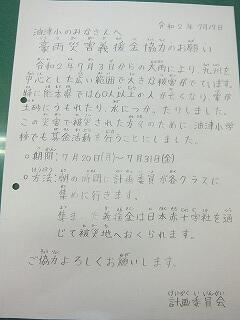 令和2年7月17日
油津小のみなさんへ
豪雨災害義援金協力のお願い
令和2年7月3日からの大雨により、九州を
中心とした広い範囲で大きな被害がでています。
特に熊本県では60人以上の人が亡くなり、家が
土砂にうもれたり、水につかったりしました。
この災害で被災された方々のために、油津小学
校でも募金活動を行うことにしました。
○期間:7月20日(月)~7月31日(金)
○方法:朝の時間に計画委員が各クラスに
集めに行きます。
集まった義援金は日本赤十字社を通
じて被災地へおくられます。
ご協力よろしくお願いします。
計画委員会